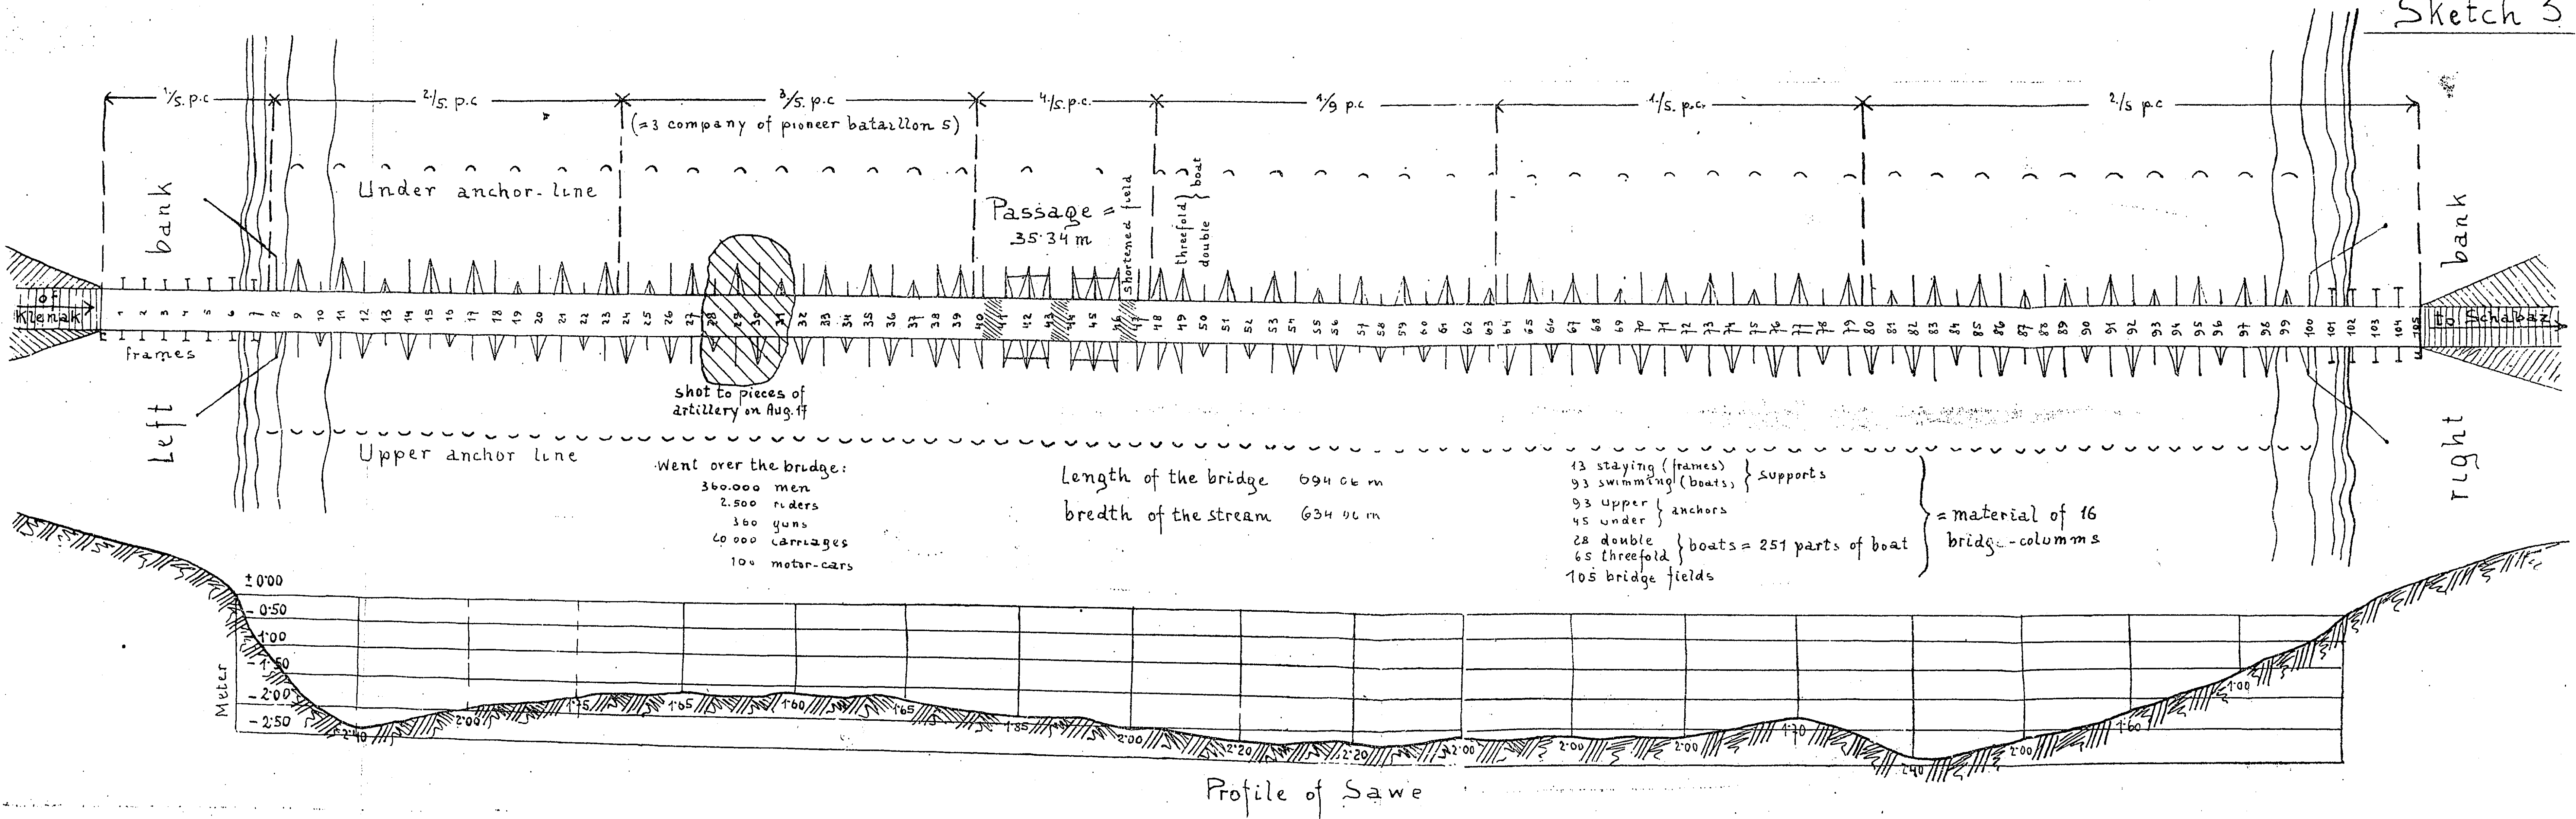 Sketch 3
1/5. p.c
2/5. p.c
3/5. p.c
(=3 company of pioneer bataillon 5)
4/5. p.c.
1/9 p.c
1/5. p.c.
2/5 p.c
Under anchor-line
Passage =
35·34 m
shortened field
threefold
double
boat
Left bank
right bank
of
Klenak
1 2 3 4 5 6 7 8 9 10 11 12 13 14 15 16 17 18 19 20 21 22 23 24 25 26 27 28 29 30 31 32 33 34 35 36 37 38 39 40 41 42 43 44 45 46 47 48 49 50 51 52 53 54 55 56 57 58 59 60 61 62 63 64 65 66 67 68 69 70 71 72 73 74 75 76 77 78 79 80 81 82 83 84 85 86 87 88 89 90 91 92 93 94 95 96 97 98 99 100 101 102 103 104 105
to Schabaz
frames
shot to pieces of
artillery on Aug. 17
Upper anchor line
Went over the bridge:
360.000 men
2.500 riders
360 guns
carriages
100 motor-cars
Length of the bridge 694 06 m
bredth of the stream 634 06 m
13 staying (frames)
93 swimming (boats)
supports
93 upper
45 under
anchors
28 double
65 threefold
boats = 251 parts of boat
105 bridge fields
= material of 16
bridge-columms
Meter
± 0·00
- 0·50
1·00
- 1·50
- 2·00
- 2·50
2·40 2·00 1·75 1·65 1·60 1·65 1·85 2·00 2·20 2·20 2·00 2·00 2·00 1·70 2·40 2·00 1·60 1·00
Profile of Sawe